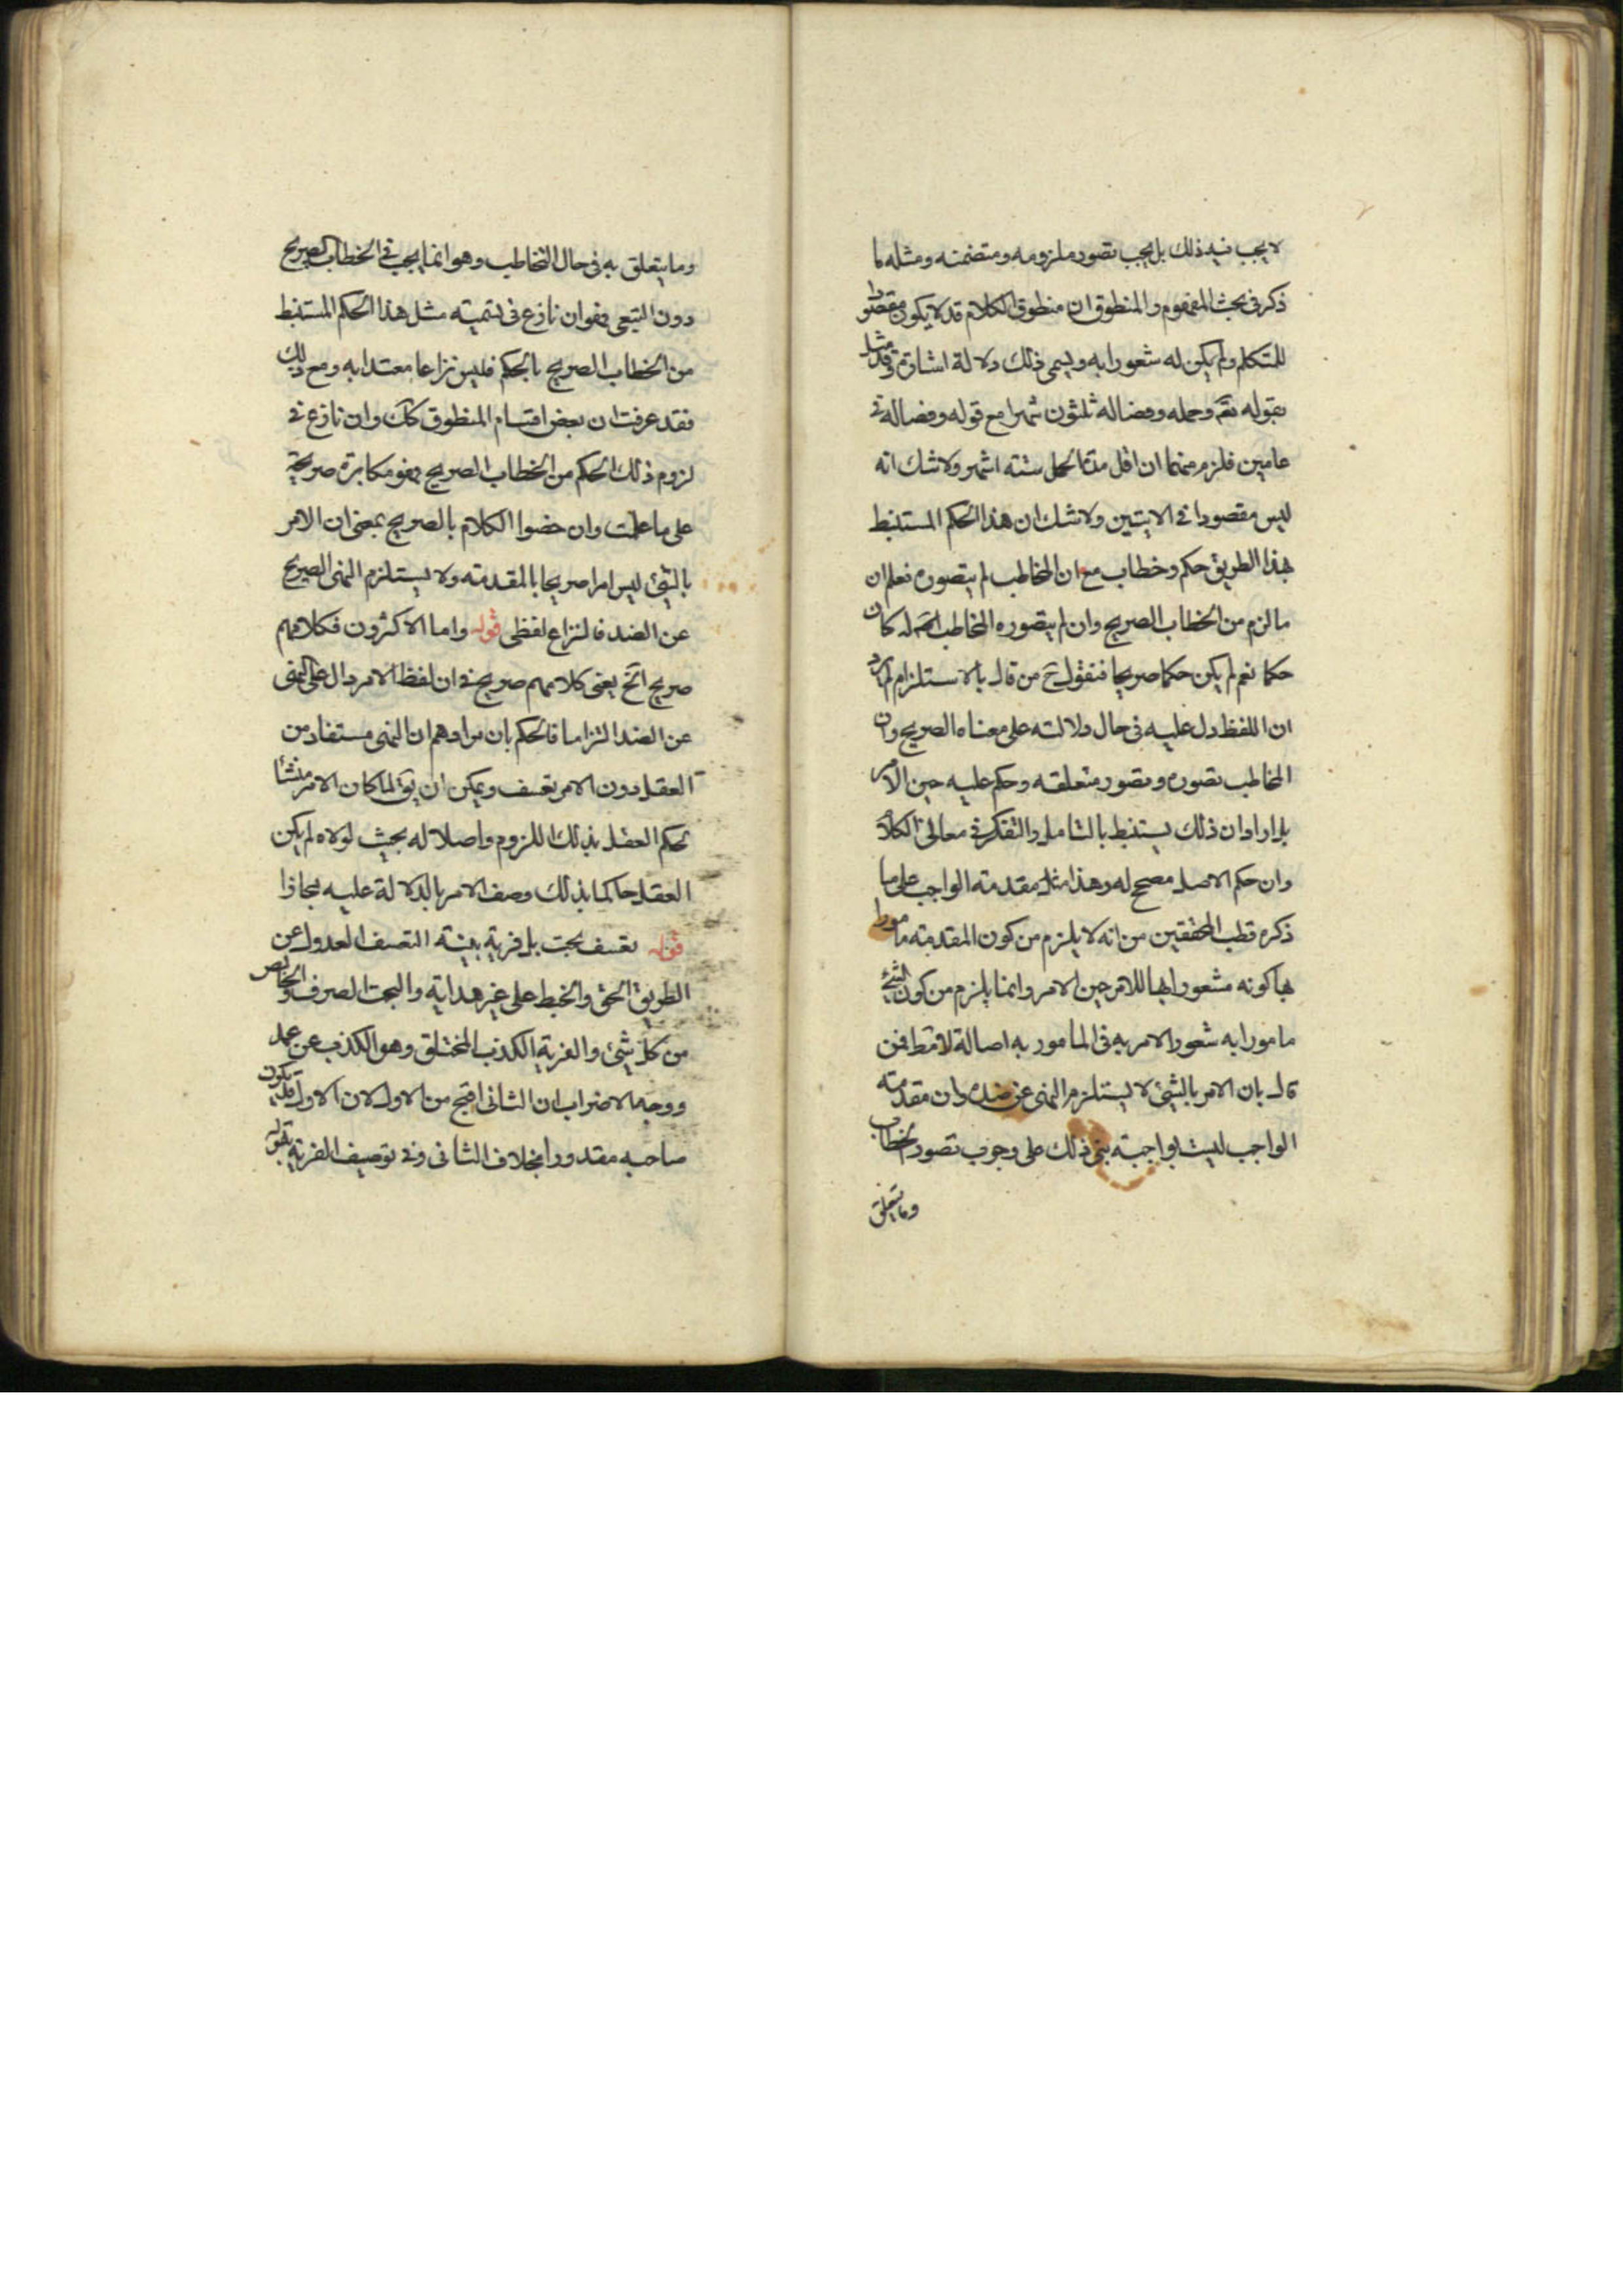 لا يجب فيه ذلك بل يجب تصور ملزومه ومتضمنه ومثله ما
ذكر فى بحث المفهوم والمنطوق ان منطوق الكلام قد لا يكون مقصودا
للمتكلم ولم يكن له شعورا به ويسمى ذلك دلالة اشارة وقد مثل
بقوله تعم وحمله وفصاله ثلثون شهرا مع قوله وفصاله فى
عامين فلزم منهما ان اقل مدة الحمل ستة اشهر ولا شك انه
ليس مقصودا فى الايتين ولا شك ان هذا الحكم المستنبط
بهذا الطريق حكم وخطاب مع ان المخاطب لم يتصوره فعلم ان
ما لزم من الخطاب الصريح وان لم يتصوره المخاطب كان
حكما نعم لم يكن حكما صريحا فنقول ح من قال بالاستلزام لم يرد
ان اللفظ دل عليه فى حال دلالته على معناه الصريح وان
المخاطب تصوره وتصور متعلقه وحكم عليه حين الامر
بل اراد ان ذلك يستنبط بالتامل والتفكر فى معانى الكلام
وان حكم الاصل مصحح له وهذا مثل مقدمة الواجب على ما
ذكره قطب المحققين من انه لا يلزم من كون المقدمة مامورا
بها كونه مشعورا بها للامر حين الامر وانما يلزم من كون الشئ
مامورا به شعور الامر به فى المامور به اصالة لا مط فمن
قال بان الامر بالشئ لا يستلزم النهى عن ضده وان مقدمة
الواجب ليست بواجبة بنى ذلك على وجوب تصور الخطاب
وما يتعلق
وما يتعلق به فى حال التخاطب وهو انما يجب فى الخطاب الصريح
دون التبعى وهو ان نازع فى تسمية مثل هذا الحكم المستنبط
من الخطاب الصريح بالحكم فليس نزاعا معتدا به ومع ذلك
فقد عرفت ان بعض اقسام المنطوق كك وان نازع فى
لزوم ذلك الحكم من الخطاب الصريح وهو مكابرة صريحة
على ما علمت وان خصوا الكلام بالصريح بمعنى ان الامر
بالشئ ليس امرا صريحا بالمقدمة ولا يستلزم النهى الصريح
عن الضد فالنزاع لفظى قوله واما الاكثرون فكلامهم
صريح اتخ يعنى كلامهم صريح فى ان لفظ الامر دال على النهى
عن الضد التزاما فالحكم بان مرادهم ان النهى مستفاد من
العقل دون الامر تعسف ويمكن ان يق لما كان الامر منشأ
لحكم العقل بذلك اللزوم واصلا له بحيث لولاه لم يكن
العقل حاكما بذلك وصف الامر بالدلالة عليه مجازا
قوله تعسف بحت بل فرية بينة التعسف العدول عن
الطريق الحق والخبط على غير هداية والبحت الصرف والخالص
من كل شئ والفرية الكذب المختلق وهو الكذب عن عمد
ووجه الاضراب ان الثانى اقبح من الاول لان الاول قد يكون
صاحبه معذورا بخلاف الثانى وفى توصيف الفرية بقوله